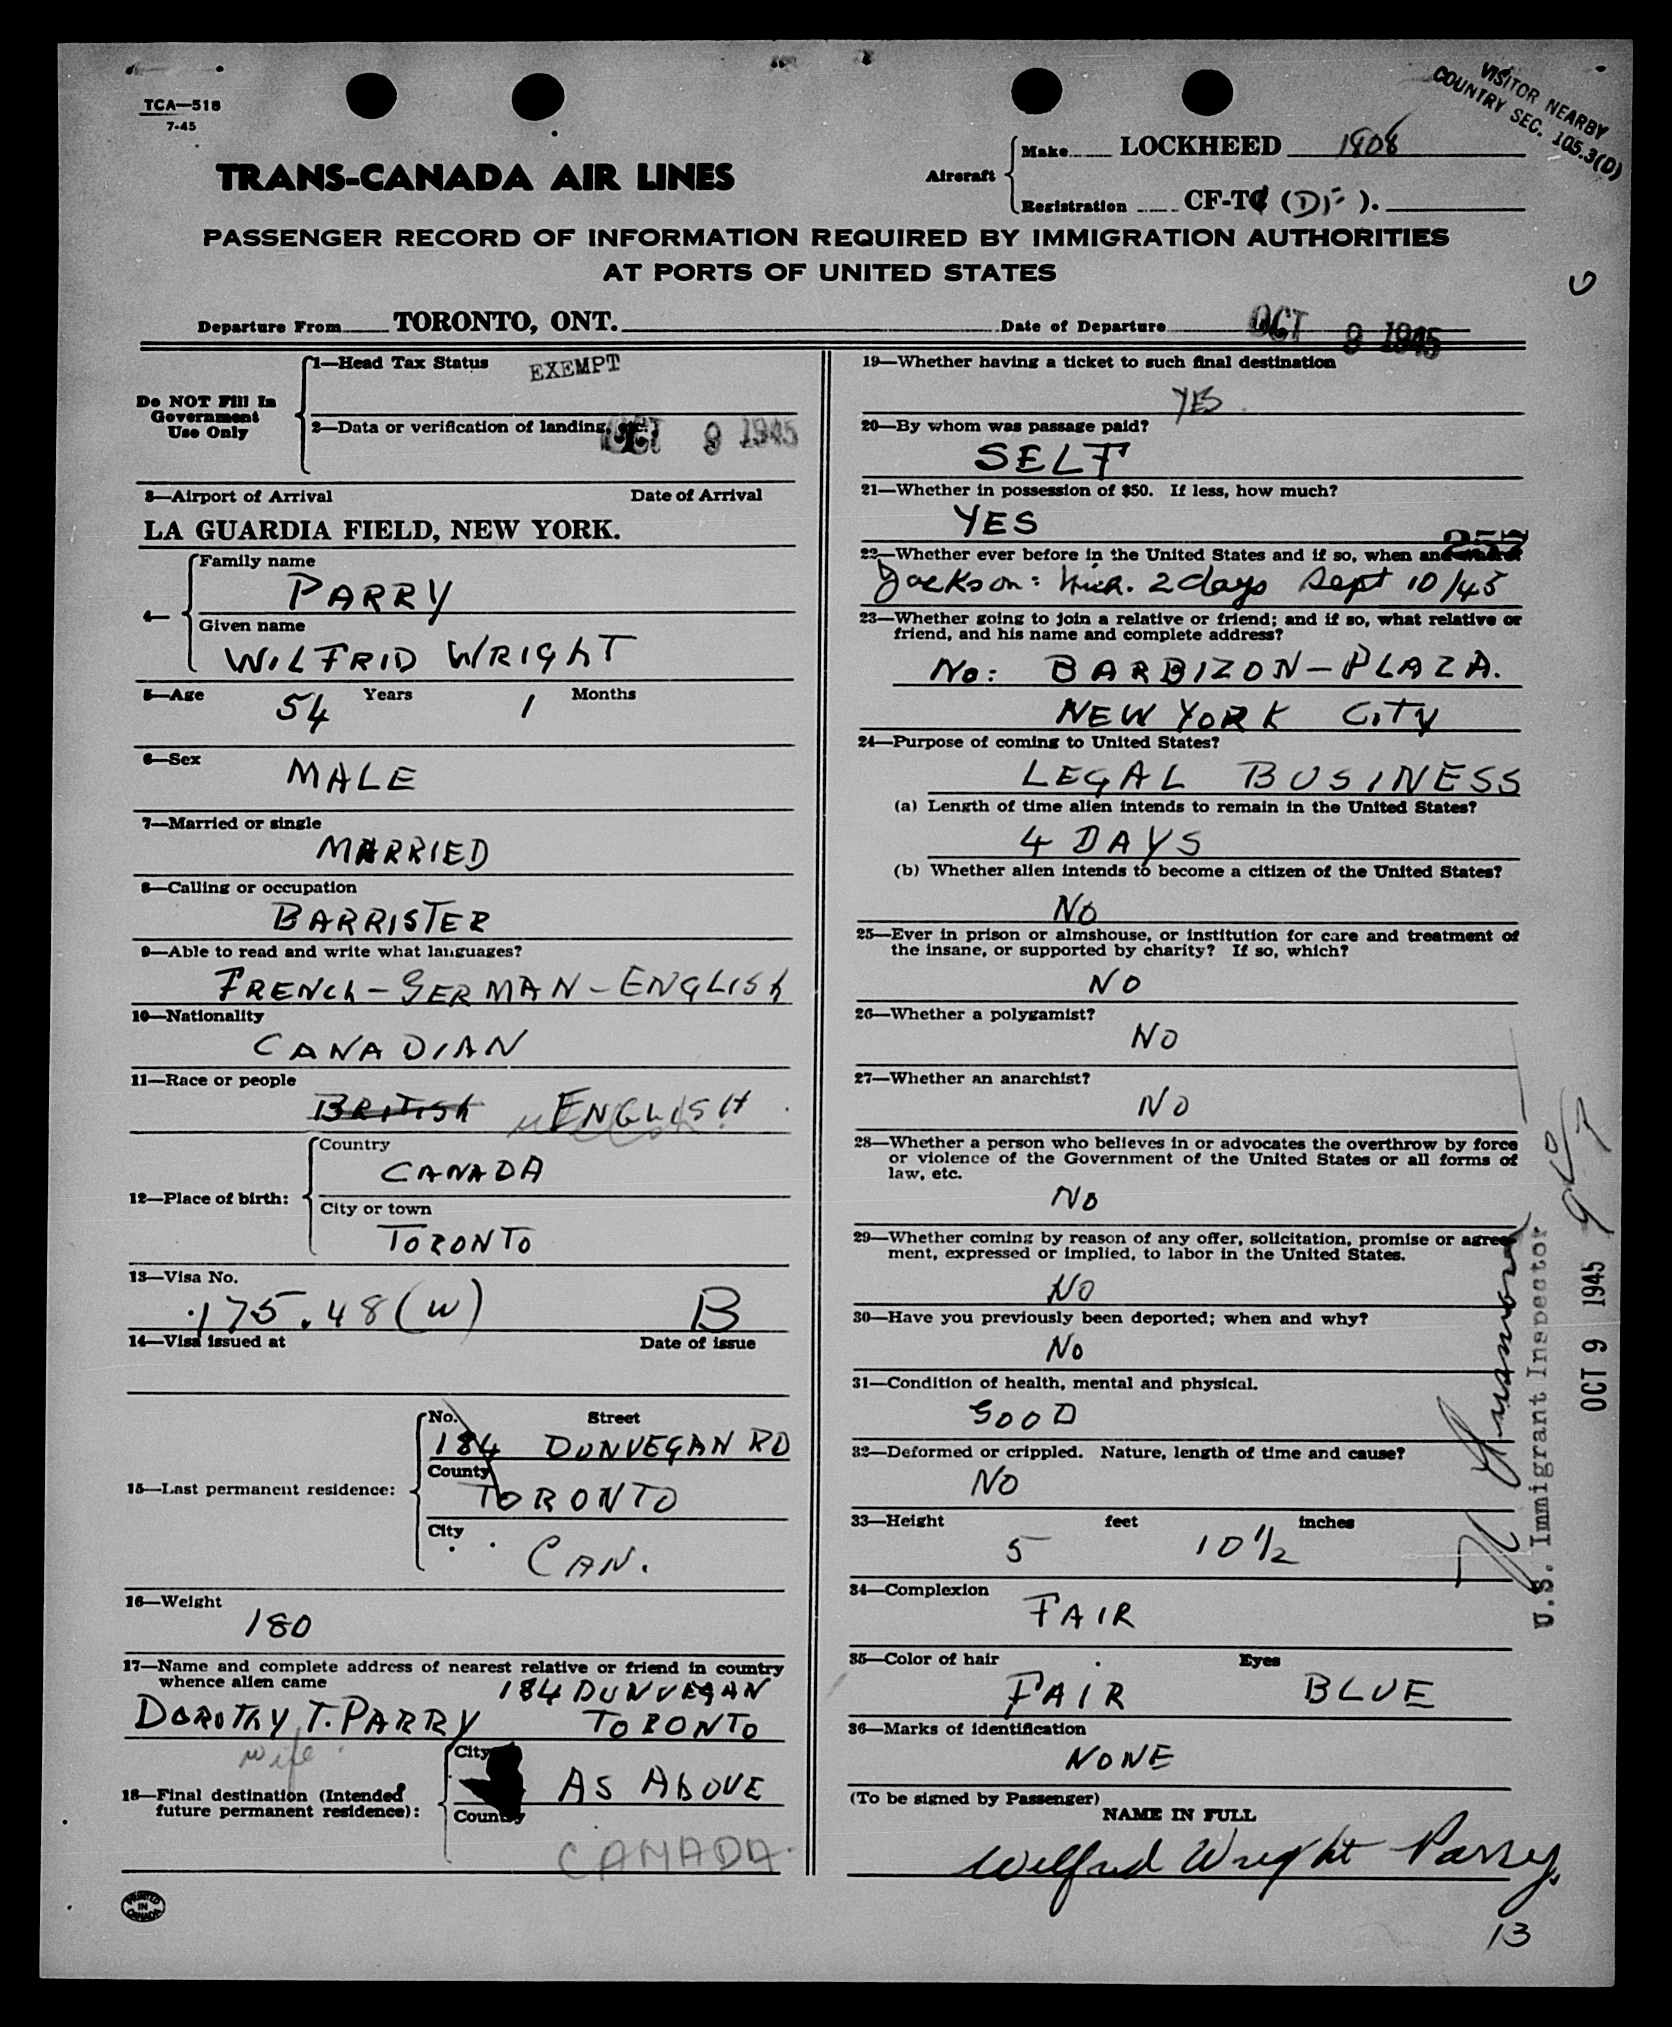 VISITOR NEARBY
COUNTRY SEC. 105.3(D)
TCA—518
7-45
TRANS-CANADA AIR LINES
Aircraft
Make LOCKHEED 1808
Registration CF-TC
PASSENGER RECORD OF INFORMATION REQUIRED BY IMMIGRATION AUTHORITIES
AT PORTS OF UNITED STATES
Departure From TORONTO, ONT. Date of Departure OCT 9 1945
Do NOT Fill In
Government
Use Only
1—Head Tax Status EXEMPT
2—Data or verification of landing, etc. OCT 9 1945
3—Airport of Arrival Date of Arrival
LA GUARDIA FIELD, NEW YORK.
4—
Family name
PARRY
Given name
WILFRID WRIGHT
5—Age 54 Years 1 Months
6—Sex
MALE
7—Married or single
MARRIED
8—Calling or occupation
BARRISTER
9—Able to read and write what languages?
FRENCH - GERMAN - ENGLISH
10—Nationality
CANADIAN
11—Race or people
BRITISH ENGLISH
12—Place of birth:
Country
CANADA
City or town
TORONTO
13—Visa No.
175.48(W) B
14—Visa issued at Date of issue
15—Last permanent residence:
No. Street
184 DUNVEGAN RD
County
TORONTO
City
CAN.
16—Weight
180
17—Name and complete address of nearest relative or friend in country
whence alien came
184 DUNVEGAN
DOROTHY T. PARRY TORONTO
wife
18—Final destination (Intended
future permanent residence):
City
AS ABOVE
County
CANADA
PRINTED
IN
CANADA
19—Whether having a ticket to such final destination
YES
20—By whom was passage paid?
SELF
21—Whether in possession of $50. If less, how much?
YES
257
22—Whether ever before in the United States and if so, when and where?
Jackson: Mich. 2 days Sept 10/45
23—Whether going to join a relative or friend; and if so, what relative or
friend, and his name and complete address?
No: BARBIZON-PLAZA.
NEW YORK CITY
24—Purpose of coming to United States?
LEGAL BUSINESS
(a) Length of time alien intends to remain in the United States?
4 DAYS
(b) Whether alien intends to become a citizen of the United States?
NO
25—Ever in prison or almshouse, or institution for care and treatment of
the insane, or supported by charity? If so, which?
NO
26—Whether a polygamist?
NO
27—Whether an anarchist?
NO
28—Whether a person who believes in or advocates the overthrow by force
or violence of the Government of the United States or all forms of
law, etc.
NO
29—Whether coming by reason of any offer, solicitation, promise or agree-
ment, expressed or implied, to labor in the United States.
NO
30—Have you previously been deported; when and why?
NO
31—Condition of health, mental and physical.
GOOD
32—Deformed or crippled. Nature, length of time and cause?
NO
33—Height 5 feet 10 1/2 inches
34—Complexion
FAIR
35—Color of hair Eyes
FAIR BLUE
36—Marks of identification
NONE
(To be signed by Passenger)
NAME IN FULL
Wilfrid Wright Parry.
13
U.S. Immigrant Inspector
OCT 9 1945